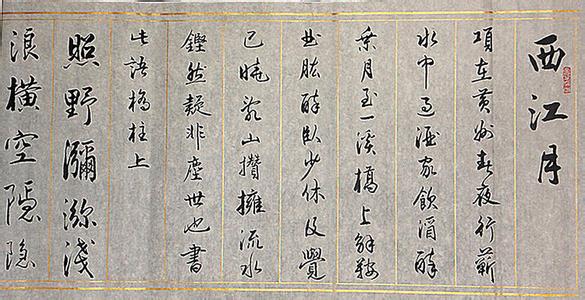 西江月
項在黃州春夜行蘄
水中過酒家飲酒醉
乘月至一溪橋上解鞍
曲肱醉臥少休及覺
已曉亂山攢擁流水
鏗然疑非塵世也書
此語橋柱上
照野瀰瀰淺
浪橫空隱隱